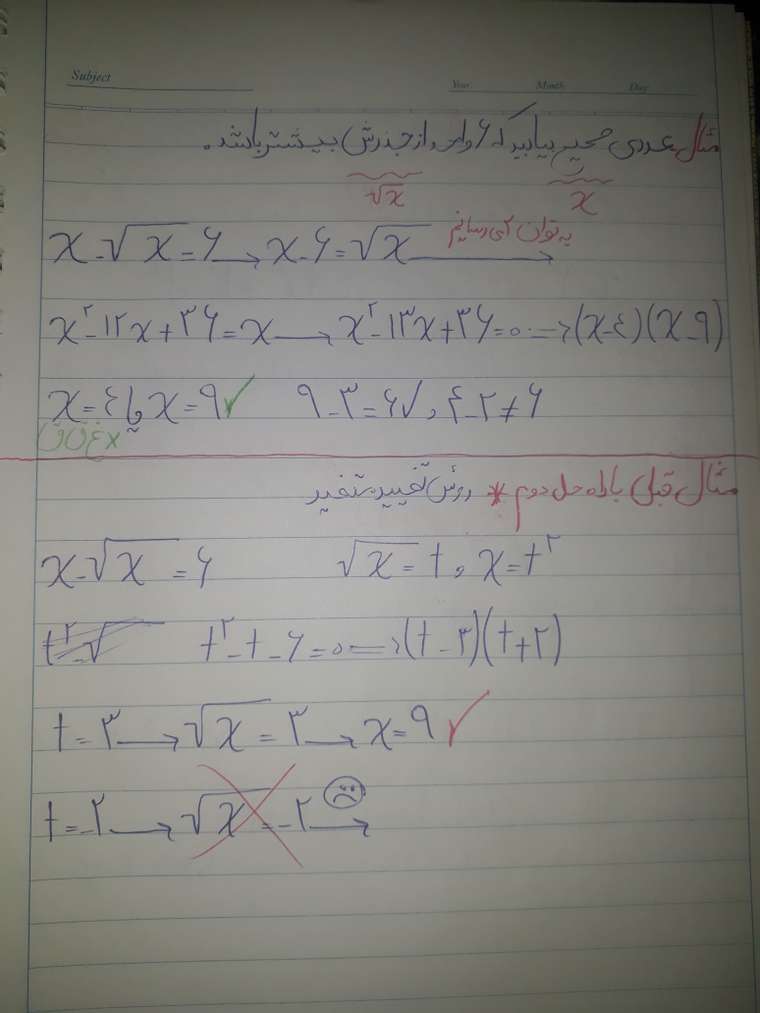 Subject
Year Month Day
مثال عددی صحیح بیابید که ۶ واحد از جذرش بیشتر باشد.
√x x
x - √x = ۶ → x - ۶ = √x به توان می رسانیم →
x² - ۱۲x + ۳۶ = x → x² - ۱۳x + ۳۶ = ۰ ⇒ (x - ٤)(x - ۹)
x = ٤ یا x = ۹ ✓ ۹ - ۳ = ۶ ✓ , ۴ - ۲ ≠ ۶
x غ ق ق
مثال قبلی با راه حل دوم * روش تغییر متغیر
x - √x = ۶ √x = t , x = t²
t² - √ t² - t - ۶ = ۰ ⇒ (t - ۳)(t + ۲)
t = ۳ → √x = ۳ → x = ۹ ✓
t = -۲ → √x = -۲ →